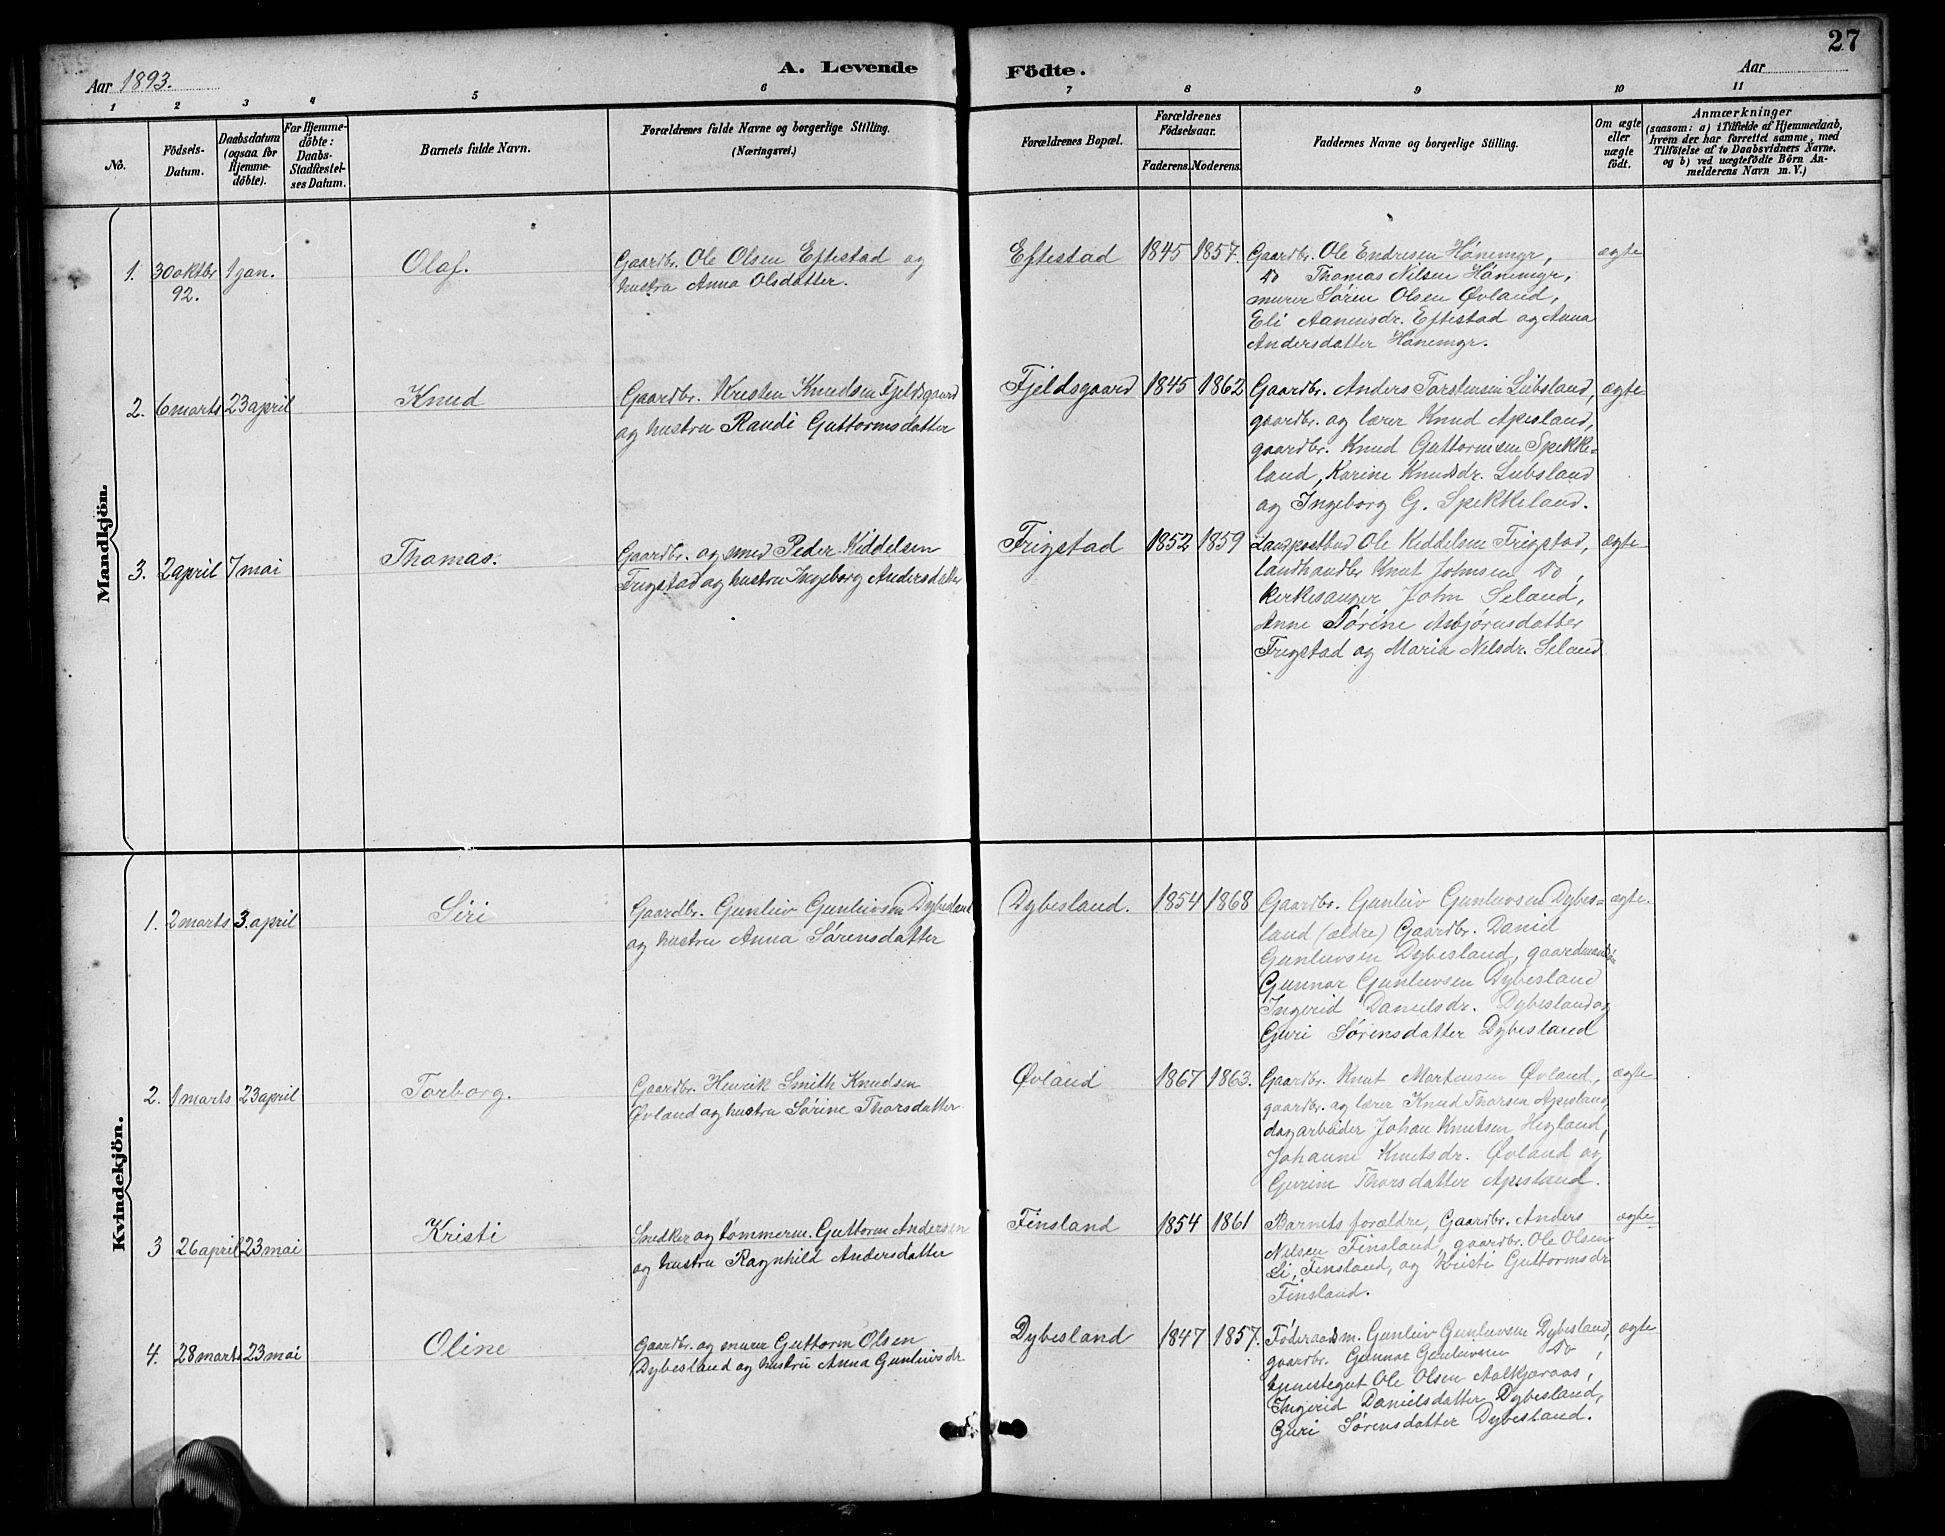 27
Aar 1893.
A. Levende Födte.
Aar
1 2 3 4 5 6 7 8 9 10 11
No.
Födsels-
Datum.
Daabsdatum
(ogsaa for
Hjemme-
döbte).
For Hjemme-
döbte:
Daabs-
Stadfæstel-
ses Datum.
Barnets fulde Navn.
Forældrenes fulde Navne og borgerlige Stilling.
(Næringsvei.)
Forældrenes Bopæl.
Forældrenes
Födselsaar.
Faderens. Moderens.
Faddernes Navne og borgerlige Stilling.
Om ægte
eller
uægte
födt.
Anmærkninger
(saasom: a) i Tilfælde af Hjemmedaab,
hvem der har forrettet samme, med
Tilföielse af to Daabsvidners Navne.
og b) ved uægtefödte Börn An-
melderens Navn m. V.)
Mandkjön.
1. 30 oktbr 1 jan.
92.
Olaf.
Gaardbr. Ole Olsen Eftestad og
hustru Anna Olsdatter.
Eftestad 1845 1857.
Gaardbr. Ole Endresen Hönemyr,
do Thomas Nilsen Hönemyr,
murer Sören Olsen Øvland,
Eli Aanensdr. Eftestad og Anna
Andersdatter Hönemyr.
ægte
2. 6 marts 23 april
Knud
Gaardbr. Kristen Knudsen Fjeldsgaard
og hustru Randi Guttormsdatter
Fjeldsgaard 1845 1862
Gaardbr. Anders Torstensen Libsland,
gaardbr. og lærer Knud Apesland,
gaardbr. Knud Guttormsen Spekke-
land, Karine Knudsdr. Libsland
og Ingeborg G. Spekkeland.
ægte
3. 2 april 7 mai
Thomas.
Gaardbr. og smed Peder Kiddelsen
Frigstad og hustru Ingeborg Andersdatter
Frigstad 1852 1859
Landpostbud Ole Kiddelsen Frigstad,
landhandler Knut Johnsen do,
kirkesanger John Seland,
Anne Törine Asbjörnsdatter
Frigstad og Maria Nilsdr. Seland
ægte
Kvindekjön.
1. 2 marts 3. april
Siri
Gaardbr. Gunleiv Gunleivsen Dybesland
og hustru Anna Sørensdatter
Dybesland. 1854 1868
Gaardbr. Gunleiv Gunleivsen Dybes-
land (ældre) Gaardbr. Daniel
Gunleivsen Dybesland, gaardmandssøn
Gunnar Gunleivsen Dybesland
Ingerid Danielsdr. Dybesland og
Guri Sørensdatter Dybesland
ægte.
2. 1 marts 23 april
Torborg.
Gaardbr. Henrik Smith Knudsen
Øvland og hustru Sörine Thorsdatter
Øvland 1867 1863.
Gaardbr. Knut Mortensen Øvland,
gaardbr. og lærer Knud Thorsen Apesland
dagarbeider Johan Knutsen Hegland,
Johanne Knutsdr. Øvland og
Gurine Thorsdatter Apesland.
ægte
3 26 april 23 mai
Kristi
Snedker og tömmerm. Guttorm Andersen
og hustru Ragnhild Andersdatter
Finsland 1854 1861
Barnets forældre, Gaardbr. Anders
Nilsen Finsland, gaardbr. Ole Olsen
Li, Finsland, og Kristi Guttormsdr
Finsland.
ægte
4. 28 marts 23 mai
Oline
Gaardbr. og murer Guttorm Olsen
Dybesland og hustru Anna Gunleivsdr
Dybesland 1847 1857.
Føderaadsm. Gunleiv Gunleivsen Dybesland,
gaardbr. Gunnar Gunleivsen do,
tjenestegut Ole Olsen Aalkjæraas,
Ingerid Danielsdatter Dybesland,
Guri Sørensdatter Dybesland.
ægte